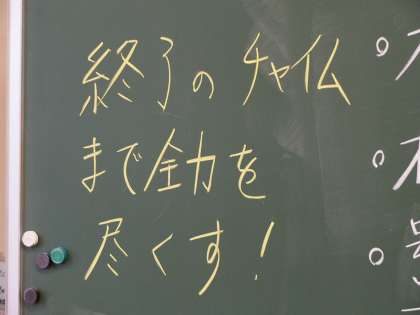 終了のチャイム
まで全力を
尽くす!